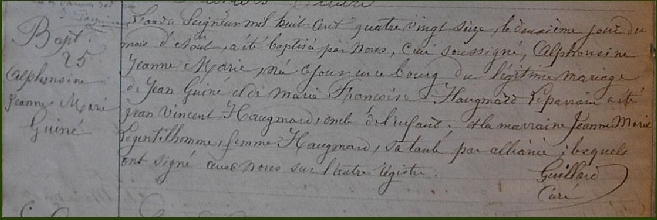 Bapt
25
Alphonsine
Jeanne Marie
Guiné
L'an du Seigneur mil huit cent quatre vingt seize, le deuxième jour du
mois d'Août, a été baptisée par nous, Curé soussigné, Alphonsine
Jeanne Marie, née ce jour en ce bourg du légitime mariage
de Jean Guiné et de Marie Françoise Haugmard. Le parrain a été
Jean Vincent Haugmard, oncle de l'enfant, et la marraine Jeanne Marie
Legentilhomme, femme Haugmard, sa tante par alliance ; lesquels
ont signé avec nous sur l'autre régistre.
Guillard
Curé